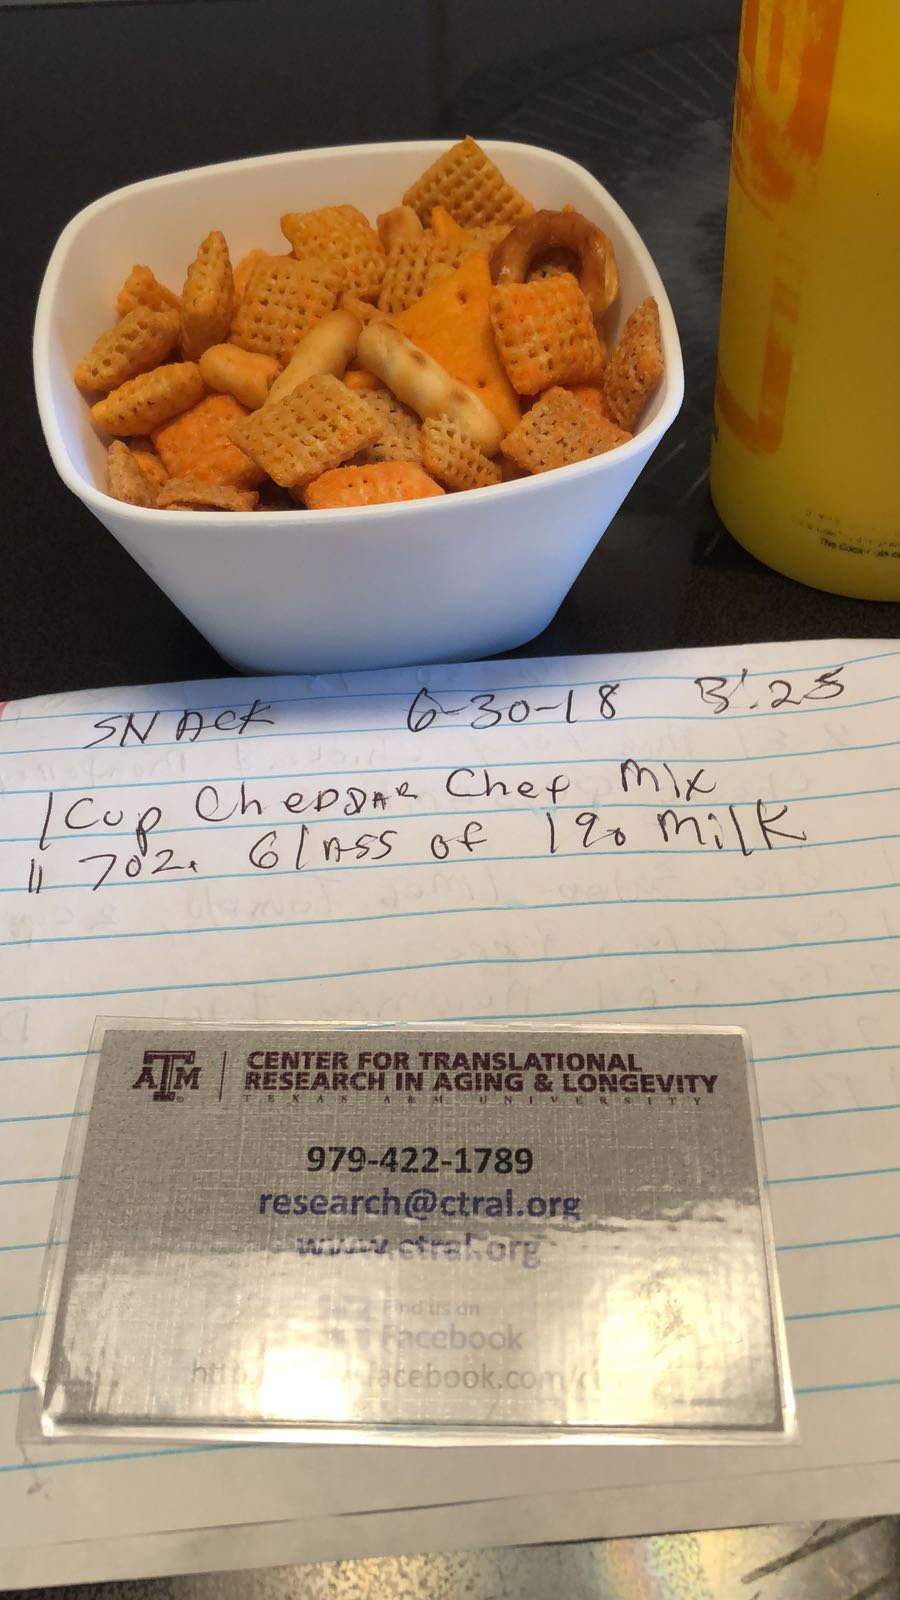 The Coca-Cola Co
SNACK 6-30-18 3:25
1 Cup CHEDDAR Chef Mix
11 7 oz. Glass of 1% Milk
ATM CENTER FOR TRANSLATIONAL
RESEARCH IN AGING & LONGEVITY
TEXAS A&M UNIVERSITY
979-422-1789
research@ctral.org
www.ctral.org
Find us on
Facebook
facebook.com/c